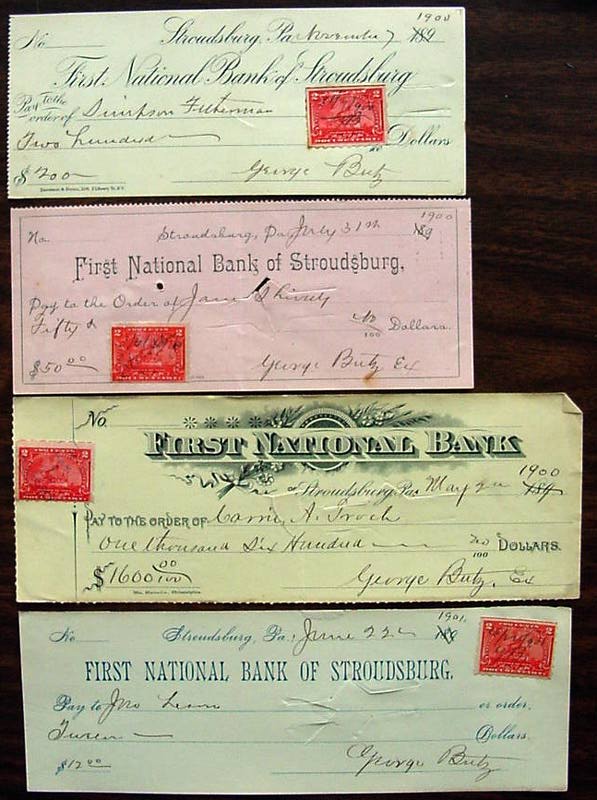 1900
No. Stroudsburg, Pa. November 7 189
First National Bank of Stroudsburg
Pay to the
order of Simpson Fetherman
Two hundred Dollars
$200 George Butz
1900
No. Stroudsburg, Pa. July 31th 189
First National Bank of Stroudsburg,
Pay to the Order of Jane
Fifty & No/100 Dollars.
$50.00 George Butz Ex
No.
FIRST NATIONAL BANK
1900
of Stroudsburg, Pa. May 189
PAY TO THE ORDER OF Carrie A. Troch
One thousand Six Hundred no/100 DOLLARS.
$1600 00/100 George Butz, Ex
1901.
No Stroudsburg, Pa., June 22 189
FIRST NATIONAL BANK OF STROUDSBURG.
Pay to Jno or order,
Dollars.
$12.00 George Butz